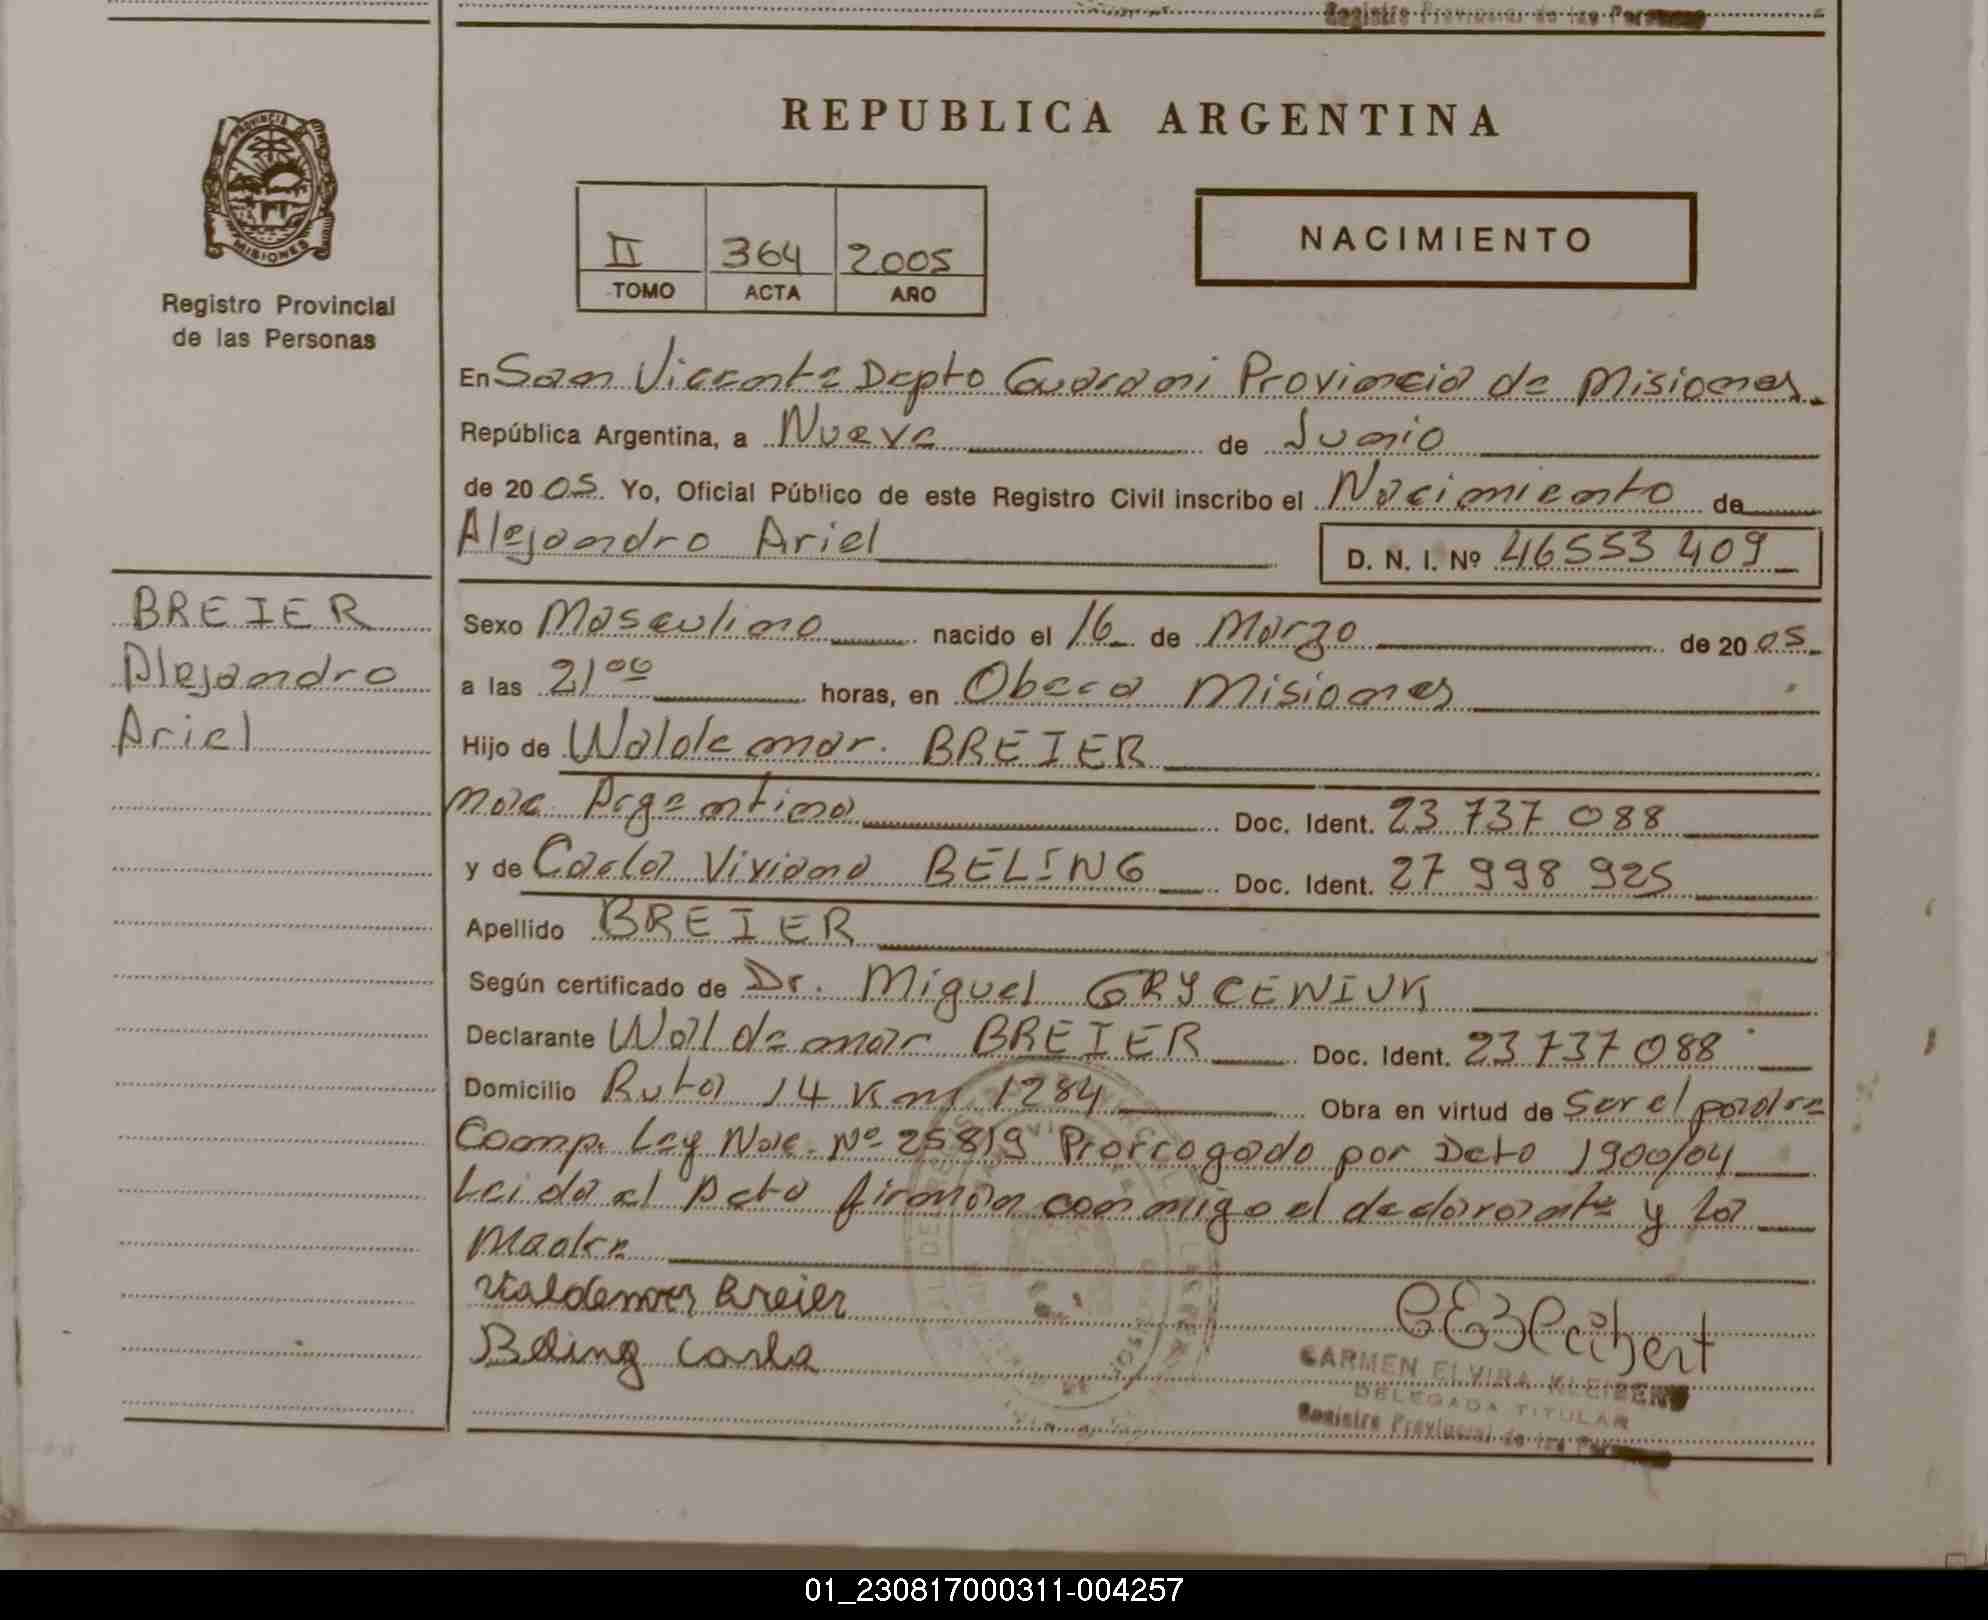 Registro Provincial de las Personas
PROVINCIA DE
MISIONES
Registro Provincial
de las Personas
REPUBLICA ARGENTINA
II 364 2005
TOMO ACTA AÑO
NACIMIENTO
En San Vicente Depto Guarani Provincia de Misiones.
República Argentina, a Nueve de Junio
de 2005. Yo, Oficial Público de este Registro Civil inscribo el Nacimiento de
Alejandro Ariel
D. N. I. Nº 46553409
BREIER
Alejandro
Ariel
Sexo Masculino nacido el 16 de Marzo de 2005
a las 21 00 horas, en Obera Misiones
Hijo de Waldemar. BREIER
Nac Argentina Doc. Ident. 23 737 088
y de Carla Viviana BELING Doc. Ident. 27 998 925
Apellido BREIER
Según certificado de Dr. Miguel GRYCENIUK
Declarante Waldemar BREIER Doc. Ident. 23737088
Domicilio Ruta 14 Km 1284 Obra en virtud de Ser el padre
Comp. Ley Nac. Nº 25819 Prorrogado por Dcto 1900/04
Leida el Acta firman conmigo el declarante y la
Madre
Valdemar Breier
Beling Carla
CEKleibert
CARMEN ELVIRA KLEIBERT
DELEGADA TITULAR
Registro Provincial de las Personas
01_230817000311-004257